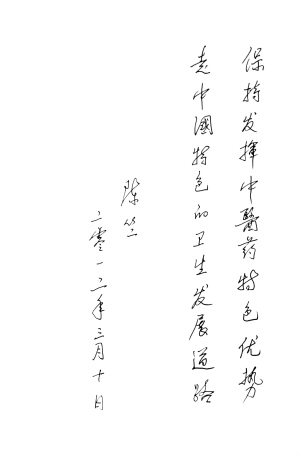 保持发挥中醫药特色优势
走中國特色的卫生发展道路
陈竺
二零一二年三月十日